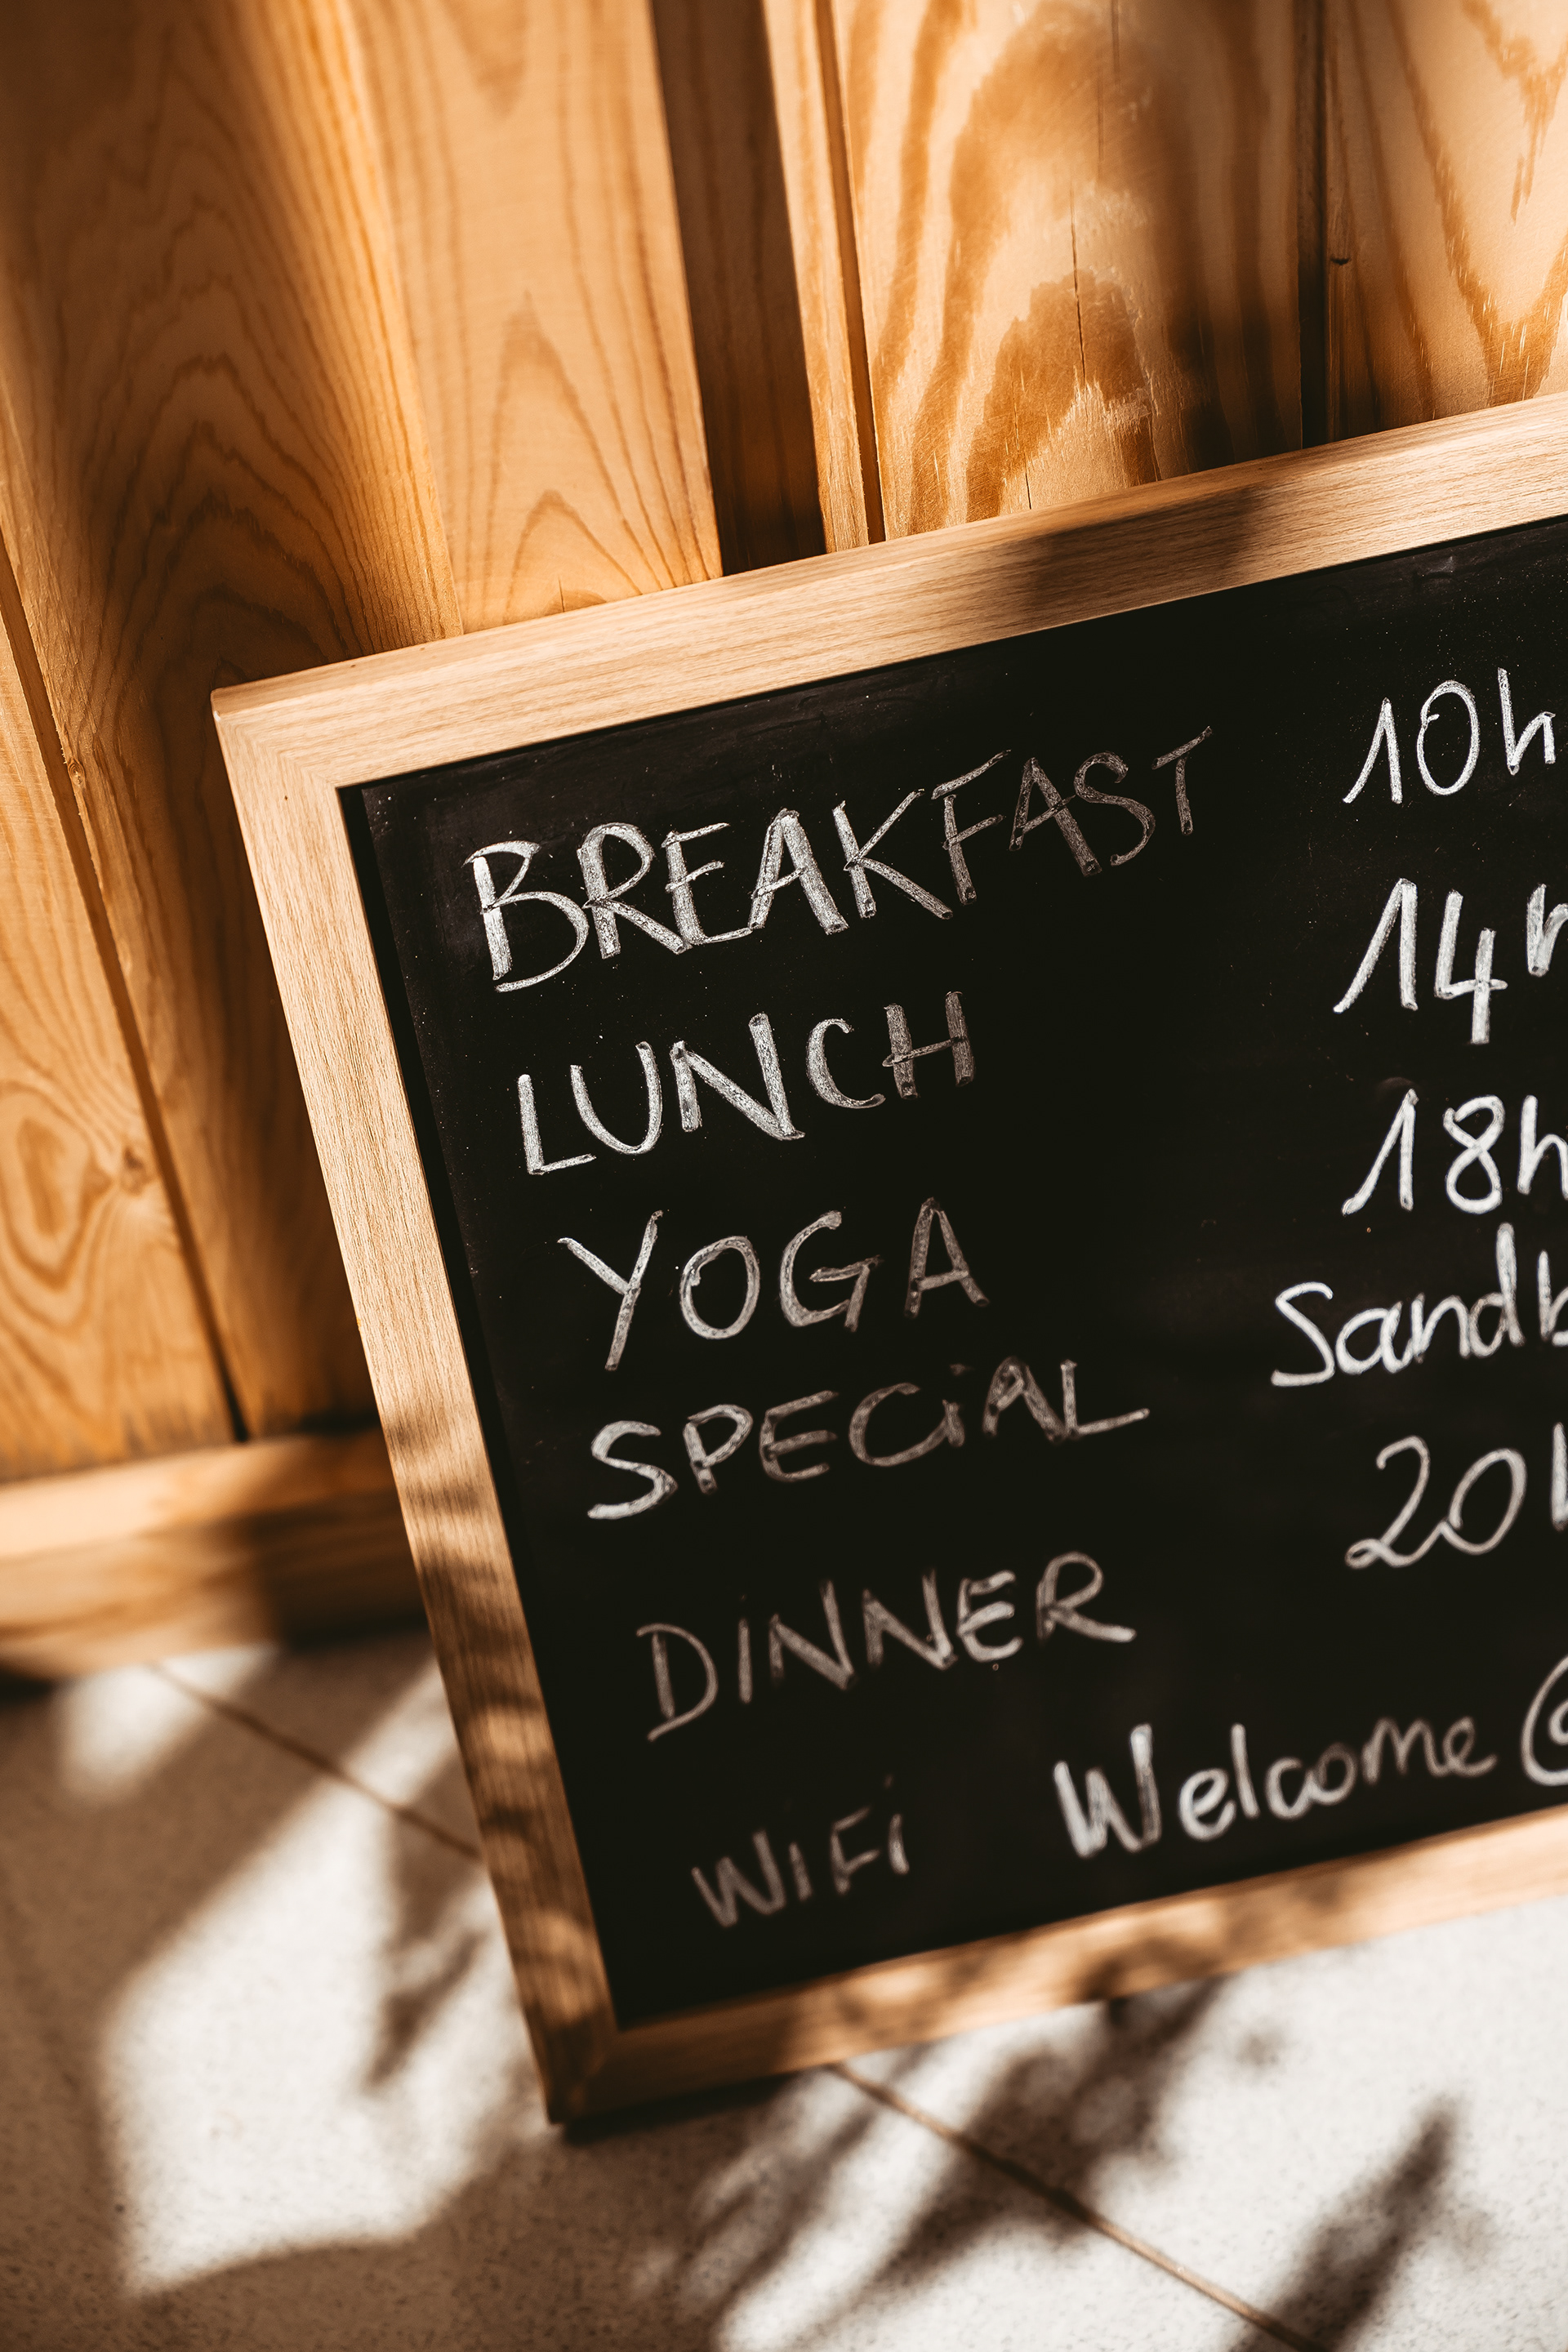 BREAKFAST 10h
LUNCH 14h
YOGA 18h
SPECiAL Sandb
DiNNER 20h
WiFi Welcome@